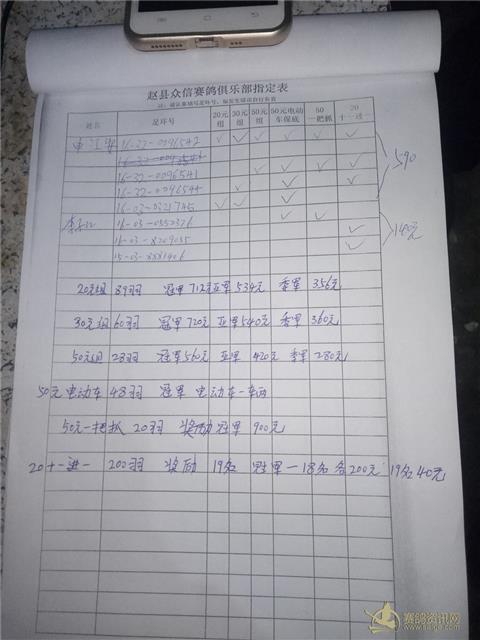 赵县众信赛鸽俱乐部指定表
姓名 足环号 20元组 30元组 50元组 50元电动车保底 50一把抓 20十一进一
16-32-0096542
16-32-0096541
16-32-0096544
16-03-0321745
590
16-03-0550376
16-03-8209055
15-03-8881406
140元
20元组 89羽 冠军 712元 亚军 534元 季军 356元
30元组 60羽 冠军 720元 亚军 540元 季军 360元
50元组 28羽 冠军 560元 亚军 420元 季军 280元
50元电动车 48羽 冠军 电动车一车两
50元一把抓 20羽 奖励冠军 900元
20十一进一 200羽 奖励 19名 冠军一18名各200元 19名40元
赛鸽资讯网